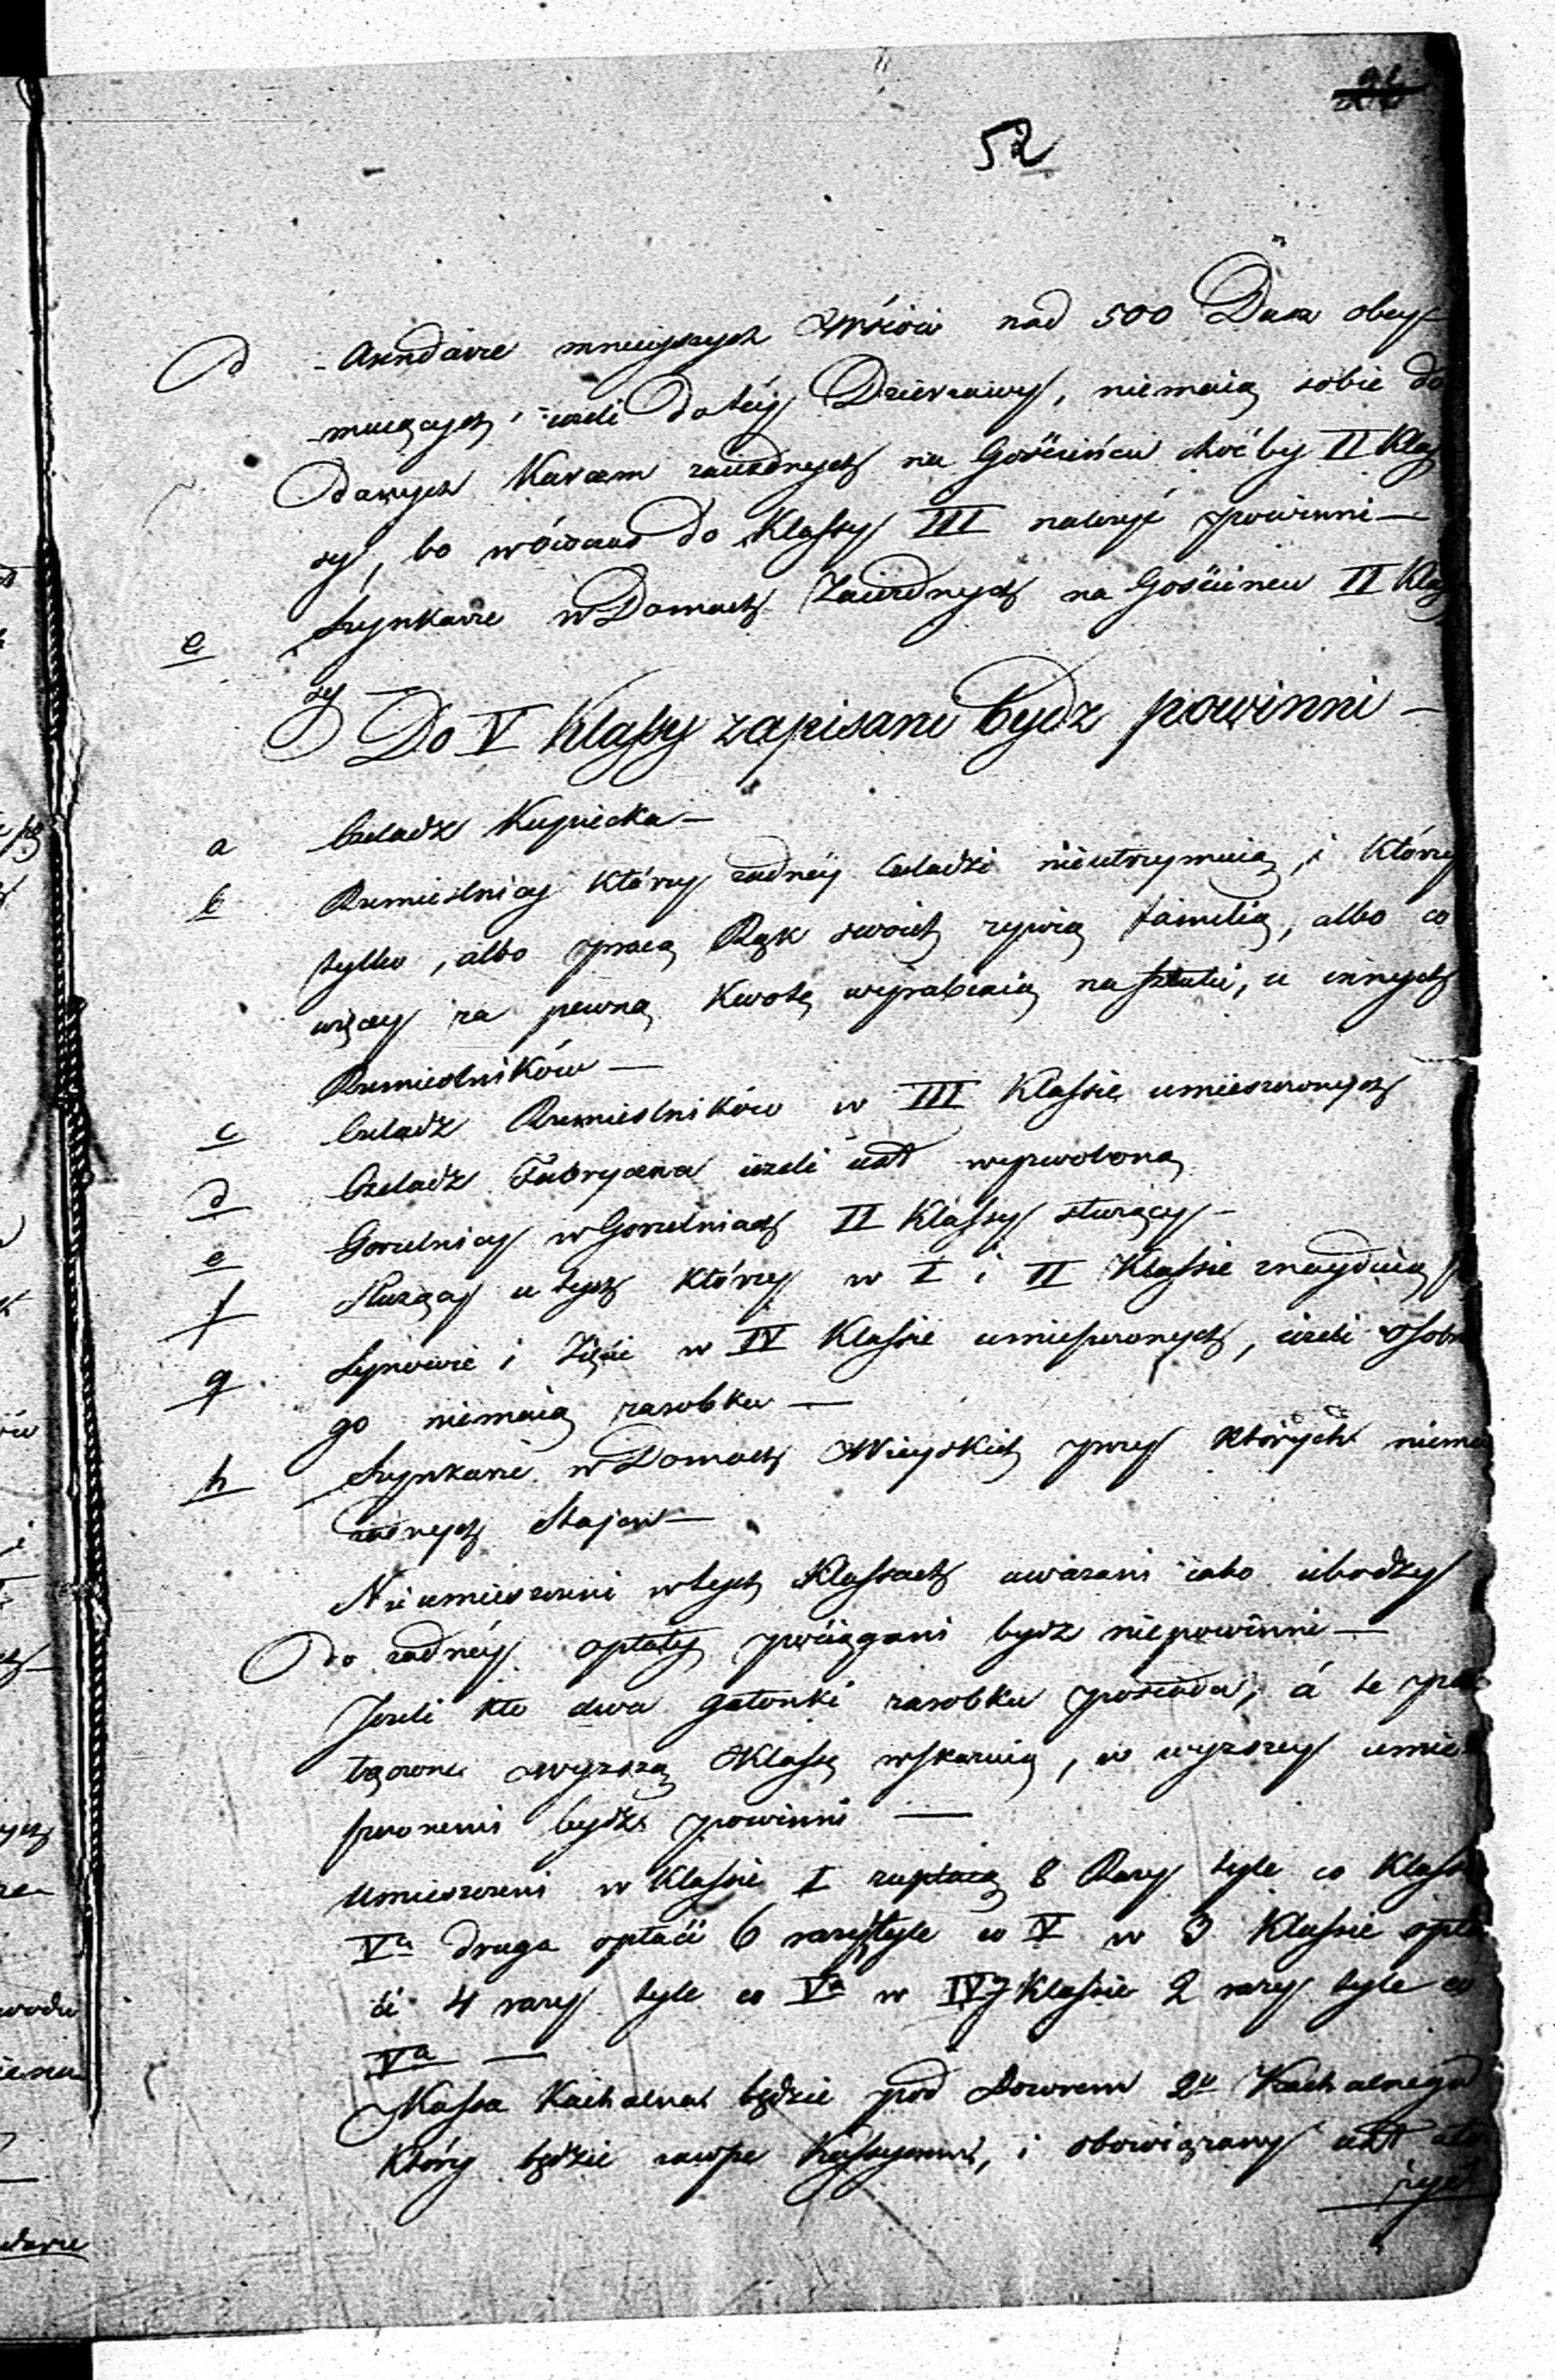 52
d Arendarze mnieyszych Włości nad 500 Dusz obey-
muiących, ieżeli do tey Dzierzawy, niemaią sobie do
danych Karczm zaiezdnych na Gościńcu choćby II Klas
sy, bo wówczas do Klassy III należyć powinni —
e Szynkarze w Domach Zaiezdnych na Gościńcu II Klas
sy —
Do V Klassy zapisani bydz powinni —
a Czeladz Kupiecka —
b Rzemieslnicy którzy żadnéy Czeladzi nieutrzymuią, i którzy
tylko, albo pracą Rąk swoich żywią familią, albo co
więcey za pewną Kwotę wyrabiaią na sztuki, u innych
Rzemieslników —
c Czeladz Rzemieslników w III Klassie umieszczonych
d Czeladz Fabryczna ieżeli iest wyzwoloną
e Gorzelnicy w Gorzelniach II Klassy służący —
f Służący u tych którzy w I i II Klassie znayduią
g Synowie i Zięcie w IV Klassie umieszczonych, ieżeli osobne
go niemaią zarobku —
h Szynkarze w Domach Wieyskich przy których niema
żadnych Stajen —
Nieumieszczeni w tych Klassach uważani iako ubodzy
do żadnéy opłaty pociągani bydz niepowinni —
Jeżeli kto dwa gatonki zarobku posiada, á te
wyższą Klassę wskazuią, w wyższey umie
szczonemi bydz powinni —
Umieszczeni w Klassie I zapłacą 8 Razy tyle co Klassa
Va druga opłaci 6 razy tyle co V w 3 Klassie opła
ci 4 razy tyle co Va w IV Klassie 2 razy tyle co
Va —
Kassa Kachalna będzie pod Dozorem 2o Kachalnego
Który będzie zawsze Kassyerem, i obowiązany iest